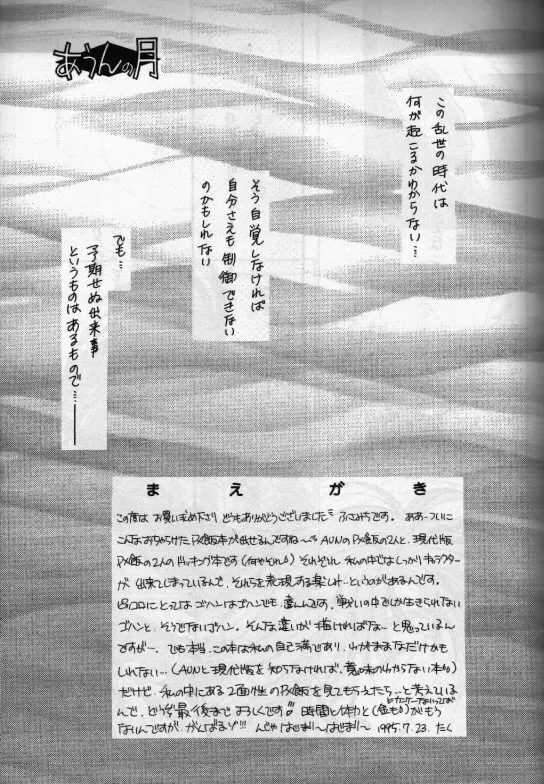 あうんの月
この乱世の時代は
何が起こるかわからない…
そう自覚しなければ
自分さえも制御できない
のかもしれない
でも…
予期せぬ出来事
というものはあるもので…――
まえがき
この度は お買い求め下さり どうもありがとうございました ふさみちです。 ああーついに
こんなおちゃらけたP×飯本が出せるんですね〜 AUNのP×飯の2人と、現代版
P×飯の2人のドッキング本です(何やそれ) それぞれ 私の中ではしっかりキャラクター
が 出来てしまっているんで、それらを表現する楽しみ…というのがあるんです。
ピッコロにとっては ゴハンはゴハンでも 違うんです。戦いの中でしか生きられない
ゴハンと、そうでないゴハン。そんな違いが 描ければな…と思っているん
ですが…。でも本当、この本は私の自己満であり、わがままなだけかも
しれない…(AUNと現代版を知らなければ、意味のわからない本)
だけど、私の中にある2面性のP×飯を見てもらえたら…と考えている
んで、どうぞ最後まで よろしくです!! 時間と体力と(金も)がもう
ないんですが がんばるゾ!!! んじゃはじまり〜はじまり〜 1995.7.23. たく